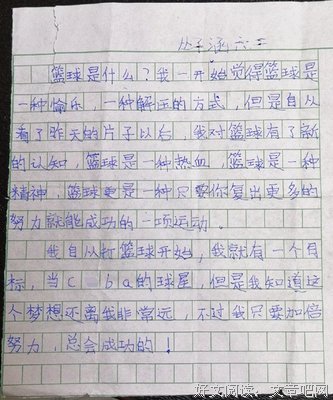 涵六三
篮球是什么?我一开始觉得篮球是
一种愉乐,一种解压的方式,但是自从
看了昨天的片子以后,我对篮球有了新
的认知,篮球是一种热血,篮球是一种
精神,篮球更是一种只要你复出更多的
努力就能成功的一项运动。
我自从打篮球开始,我就有一个目
标,当c ba的球星,但是我知道这
个梦想还离我非常远,不过我只要加倍
努力,总会成功的!
好文阅读:文章吧网